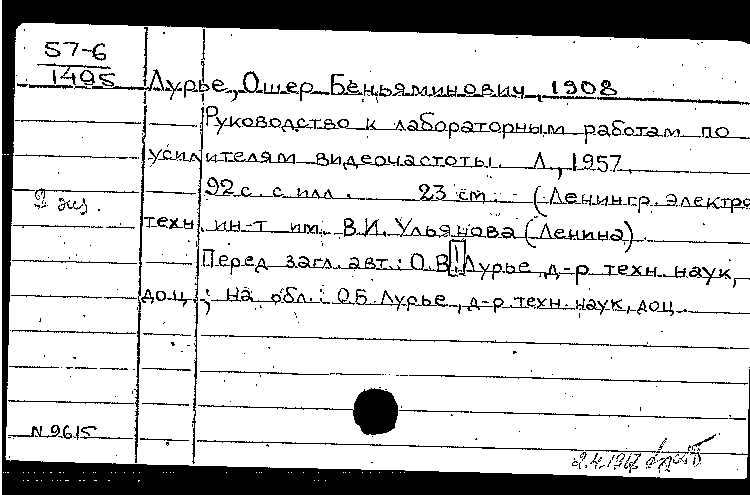 57-6
1495
Лурье, Ошер Беньяминович, 1908
Руководство к лабораторным работам по
усилителям видеочастоты. Л., 1957.
92 с. с илл. 23 см. (Ленингр. электро
2 экз.
техн. ин-т им. В.И. Ульянова (Ленина)
Перед загл. авт.: О.В[!] Лурье, д-р техн. наук,
доц.; на обл.: О.Б. Лурье, д-р техн. наук, доц.
N 9615